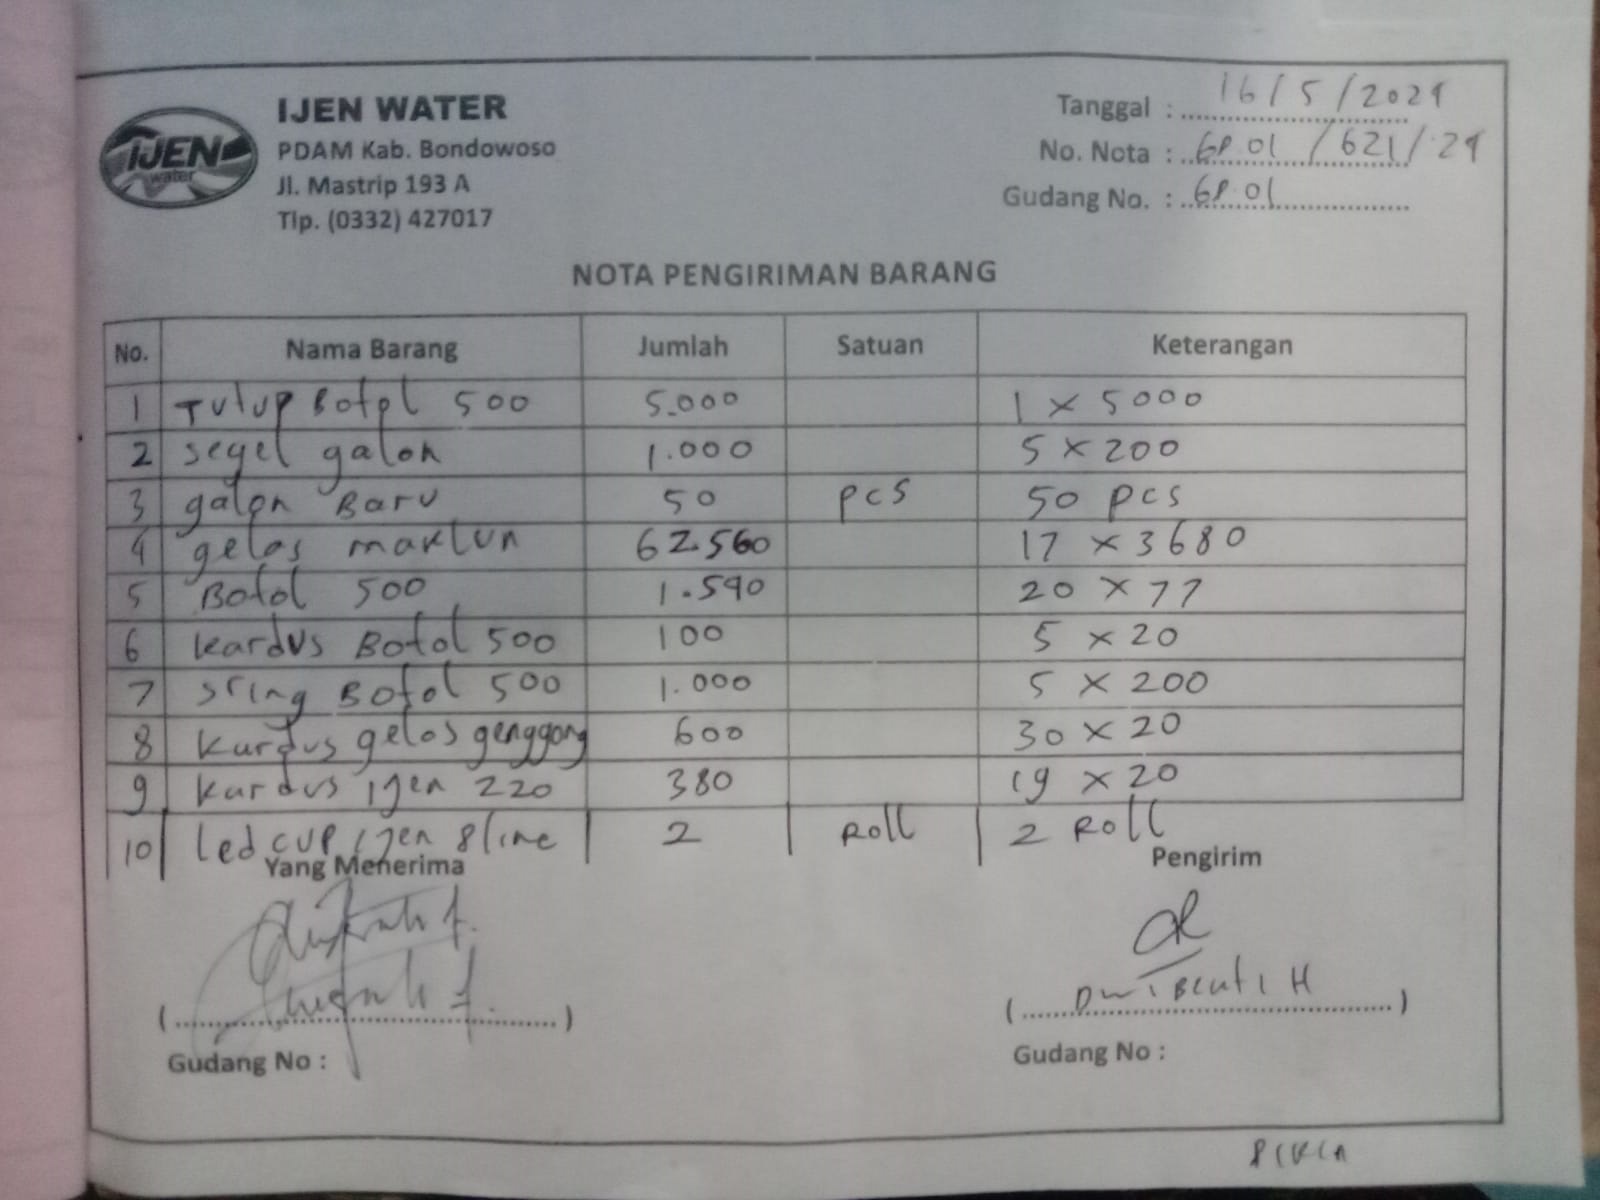 IJEN
water
IJEN WATER
PDAM Kab. Bondowoso
Jl. Mastrip 193 A
Tlp. (0332) 427017
Tanggal : 16/5/2024
No. Nota : GP.01 /621/.24
Gudang No. : GP.01
NOTA PENGIRIMAN BARANG
No. Nama Barang Jumlah Satuan Keterangan
1 Tutup Botol 500 5.000 1 x 5000
2 segel galon 1.000 5 x 200
3 galon Baru 50 pcs 50 pcs
4 gelas maklun 62.560 17 x 3680
5 Botol 500 1.540 20 x 77
6 kardus Botol 500 100 5 x 20
7 sring Botol 500 1.000 5 x 200
8 kardus gelas genggong 600 30 x 20
9 kardus ijen 220 380 19 x 20
10 led cup ijen 8 line 2 Roll 2 Roll
Yang Menerima Pengirim
( ) ( Dwi H )
Gudang No : Gudang No :